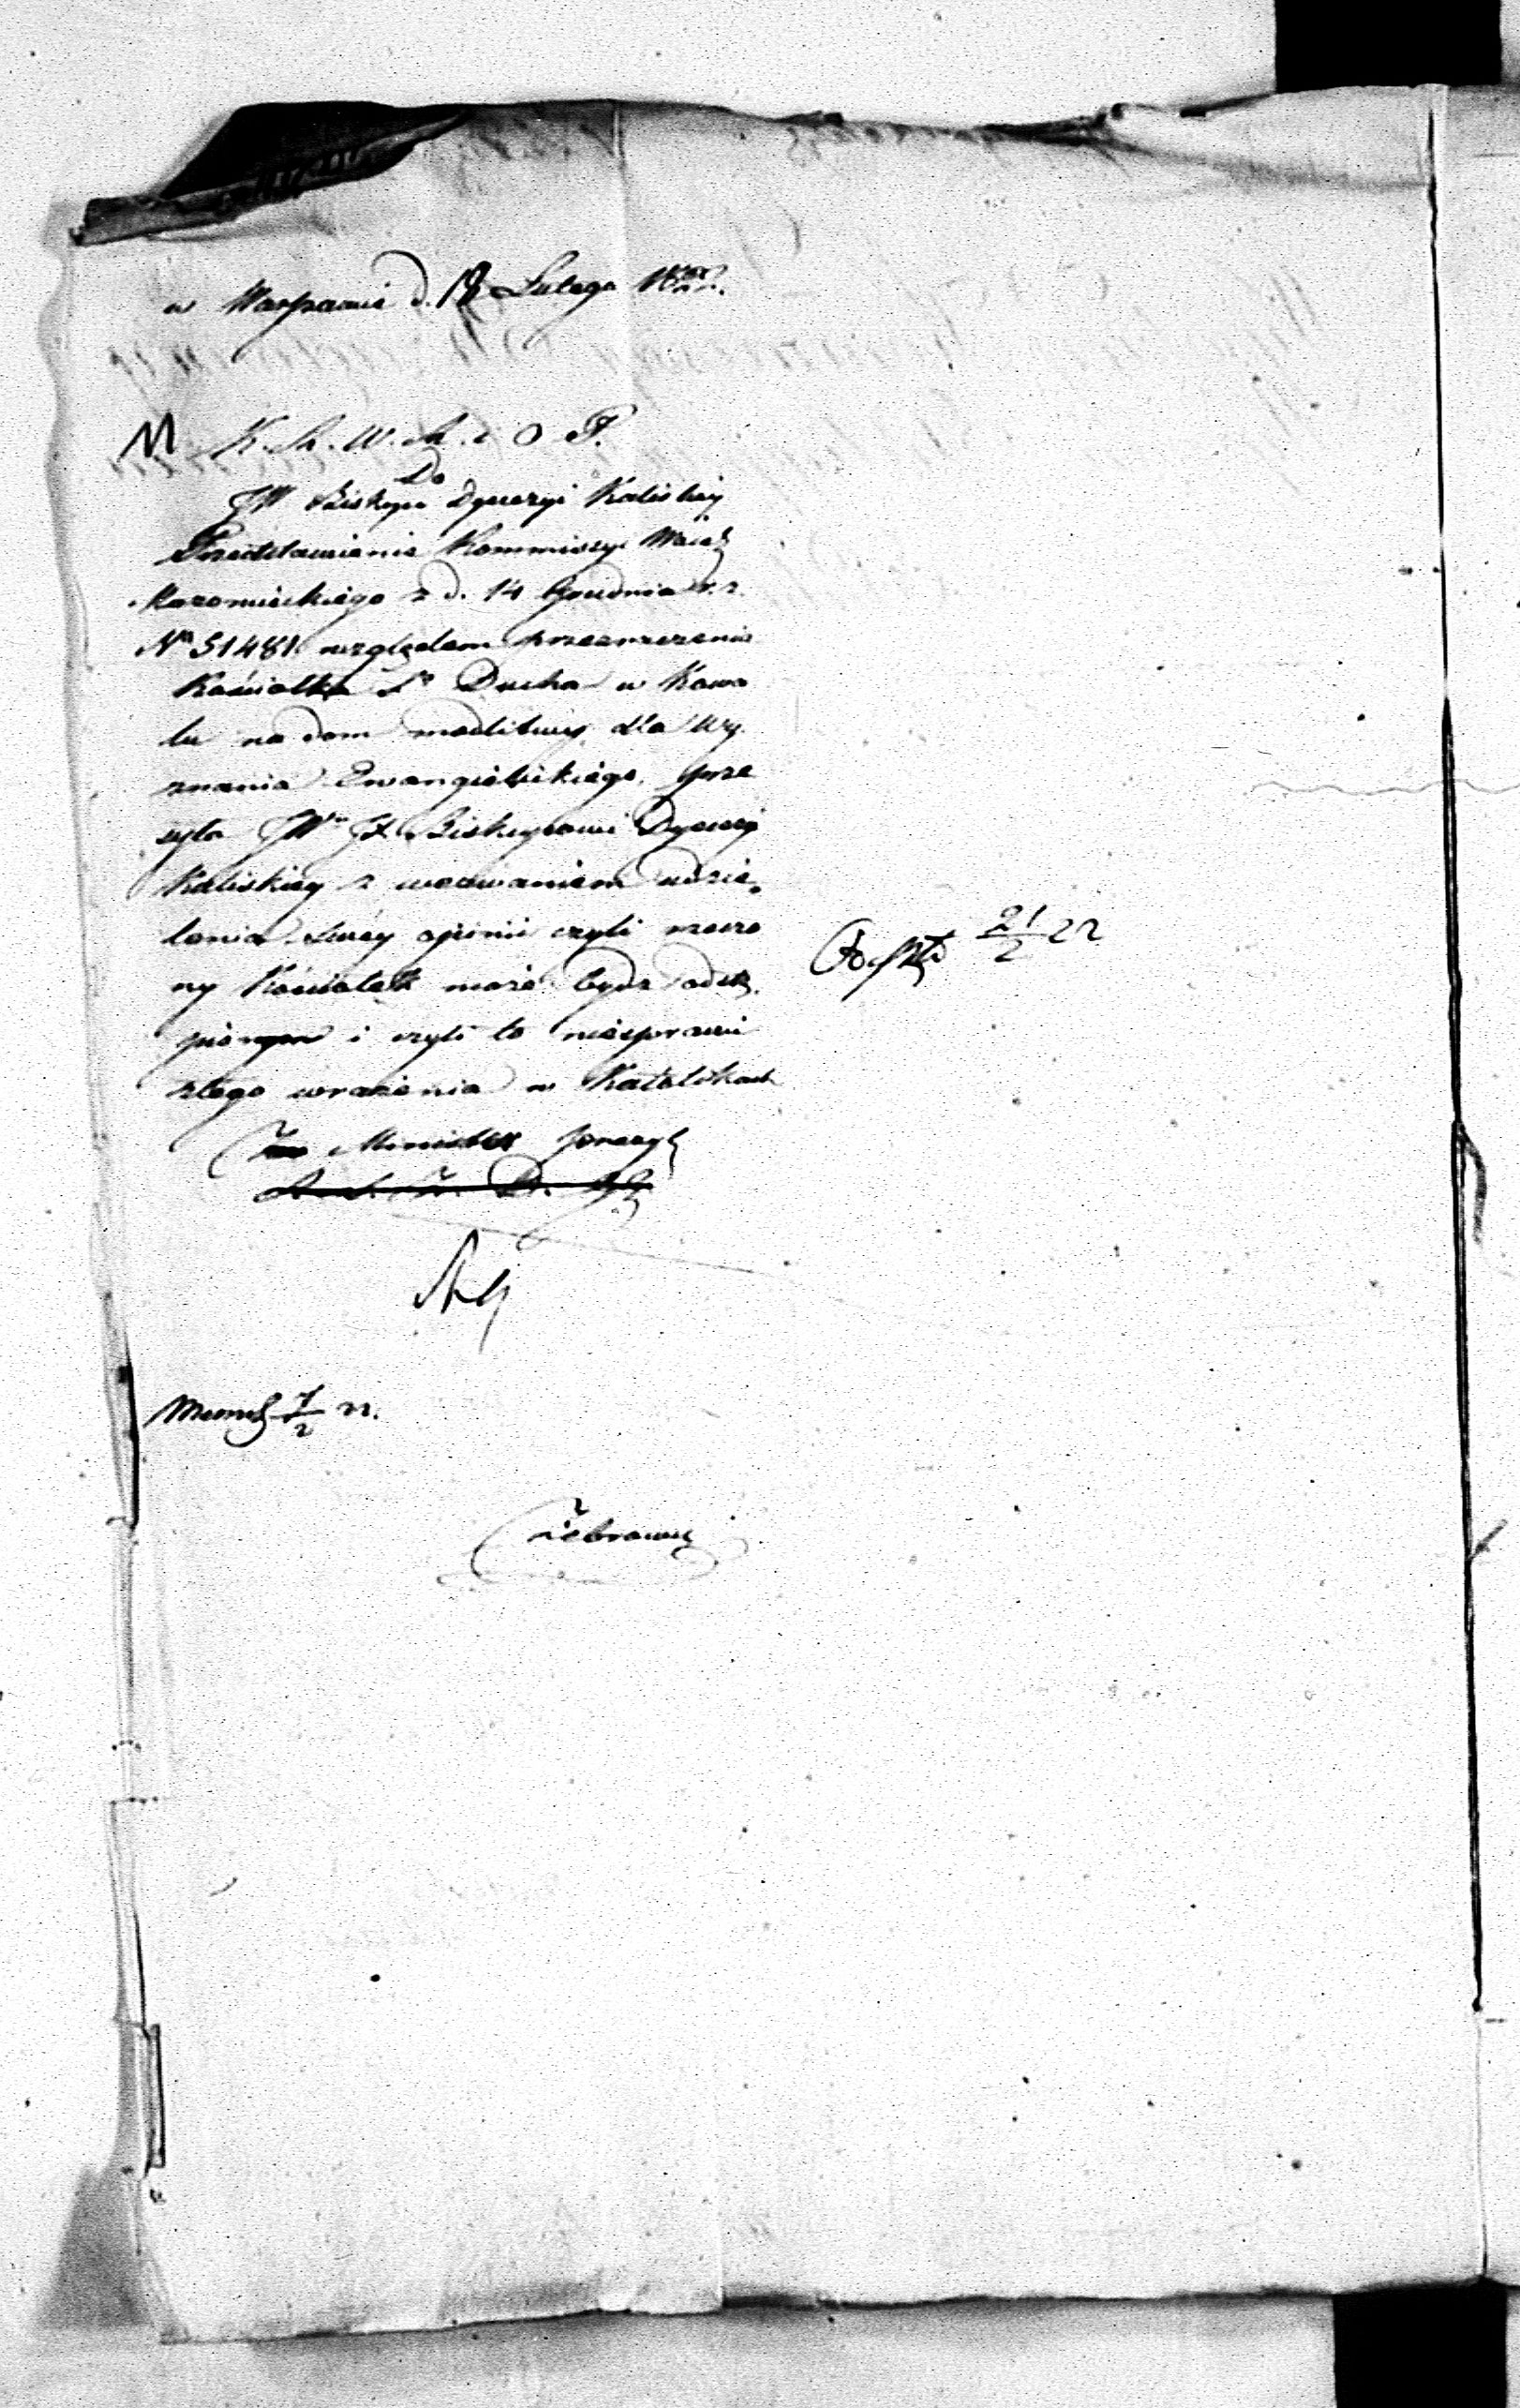 w Warszawie d. Lutego
K. R. W. R. i O. P.
Do
JW Biskupa Dyecezyi Kaliskiey
Przedstawienie Kommissyi Wdztz
Mazowieckiego z d. 14 Grudnia r. z.
No 51481 względem przeznaczenia
Kościołka Sgo Ducha w Kowa
lu na dom modlitwy dla Wy
znania Ewangielickiego prze
syła JWmu JX Biskupowi Dyecezyi
Kaliskiey z wezwaniem udzie
lenia swey opinii czyli rzeczo
ny Kościołek może bydz odstą
pionym i czyli to niesprawi
złego wrażenia w Katolikach
Minister prezyd
21/2 22
7/2 22.
Żebrowski